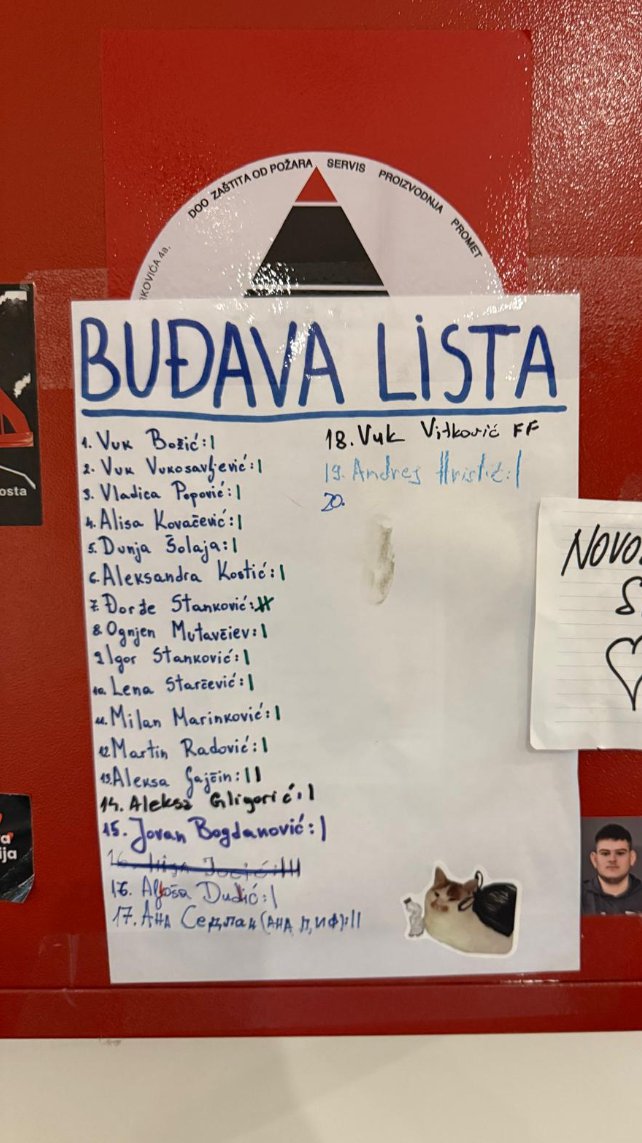 DOO ZAŠTITA OD POŽARA SERVIS PROIZVODNJA PROMET
4a.
BUĐAVA LISTA
1. Vuk Božić: |
2. Vuk Vukosavljević: |
3. Vladica Popović: |
4. Alisa Kovačević: |
5. Dunja Šolaja: |
6. Aleksandra Kostić: |
7. Đorđe Stanković:
8. Ognjen Mutavčiev: |
9. Igor Stanković: |
10. Lena Starčević: |
11. Milan Marinković: |
12. Martin Radović: |
13. Aleksa Gajčin: ||
14. Aleksa Gligorić: |
15. Jovan Bogdanović: |
16.
16. Aljoša Dudić: |
17. Ана Седлак (АНА, П, И Ф): ||
18. Vuk Vitković FF
19. Andrej Hristić: |
20.
osta
ija